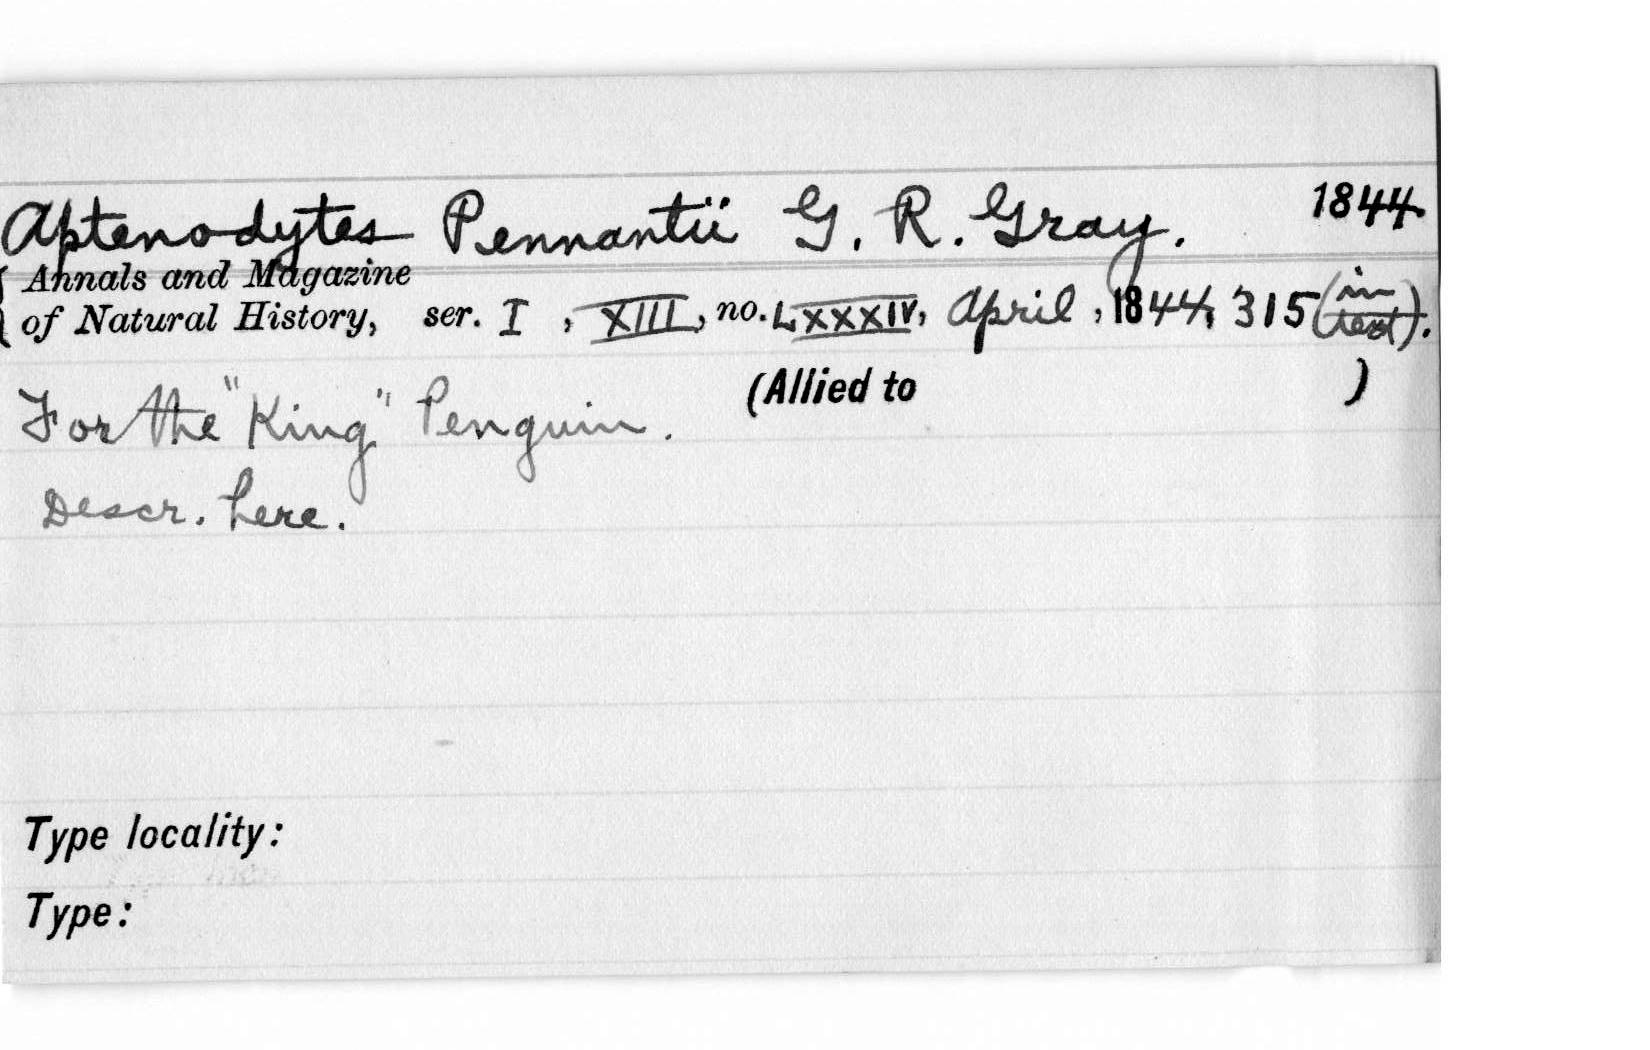 Aptenodytes Pennantii G. R. Gray. 1844.
Annals and Magazine
of Natural History, ser. I, XIII, no. LXXXIV, April, 1844, 315 (in text).
(Allied to )
For the "King" Penguin.
Descr. here.
Type locality:
Type: